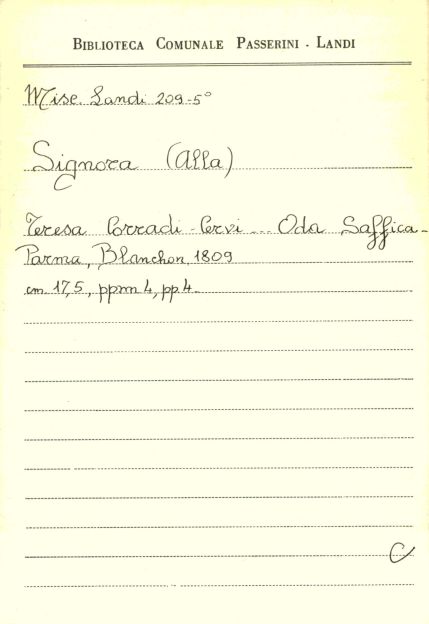 BIBLIOTECA COMUNALE PASSERINI - LANDI
Misc. Landi 209-5°
Signora (Alla)
Teresa Corradi-Cervi ... Oda Saffica-
Parma, Blanchon, 1809
cm 17,5, ppnn 4, pp. 4-
C